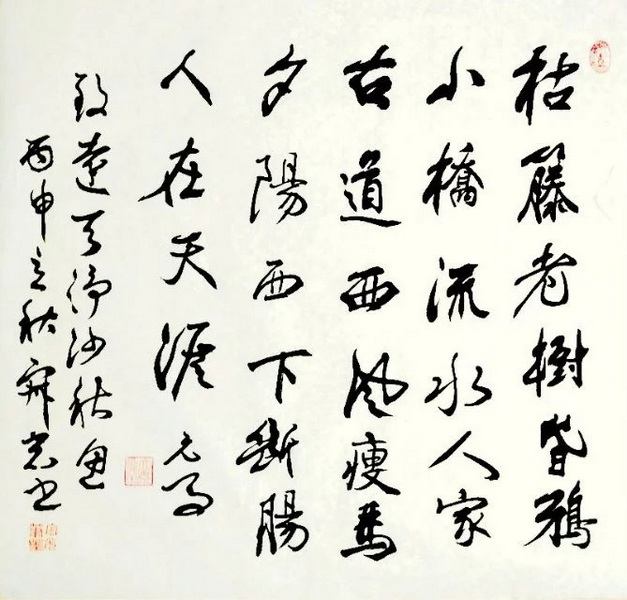 枯籐老樹昏鴉
小橋流水人家
古道西風瘦馬
夕陽西下斷腸
人在天涯 元馬
致遠天淨沙秋思
丙申立秋书